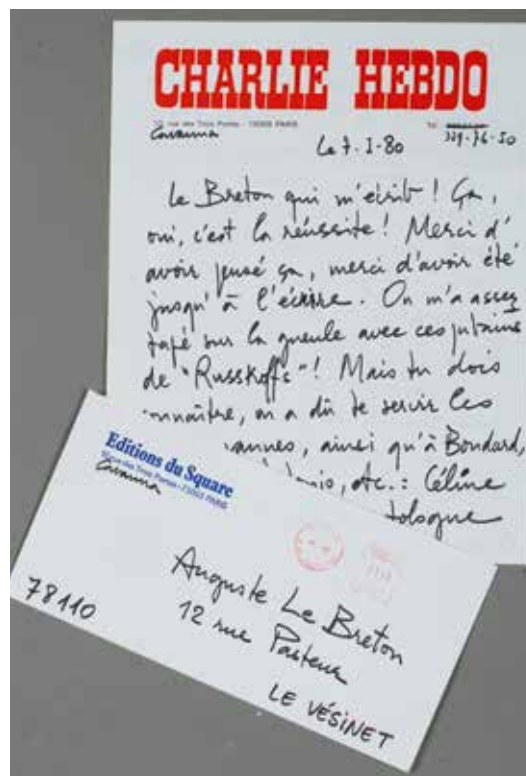 CHARLIE HEBDO
10, rue des Trois Portes - 75005 PARIS
Cavanna
Tél. 329-76-50
Le 7-I-80
Le Breton qui m'écrit ! Ça,
oui, c'est la réussite ! Merci d'
avoir pensé ça, merci d'avoir été
jusqu'à l'écrire. On m'a assez
tapé sur la gueule avec ces putains
de "Russkoffs" ! Mais tu dois
connaître, on a dû te servir les
annes, ainsi qu'à Boudard,
etc. : Céline
Editions du Square
10, rue des Trois Portes - 75005 PARIS
Cavanna
Auguste Le Breton
12 rue Pasteur
78110
LE VÉSINET